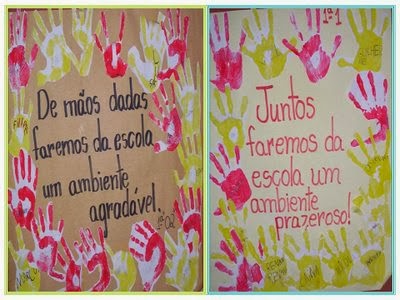 De mãos dadas
faremos da escola
um ambiente
agradável.
1ª1
Juntos
faremos da
escola um
ambiente
prazeroso!